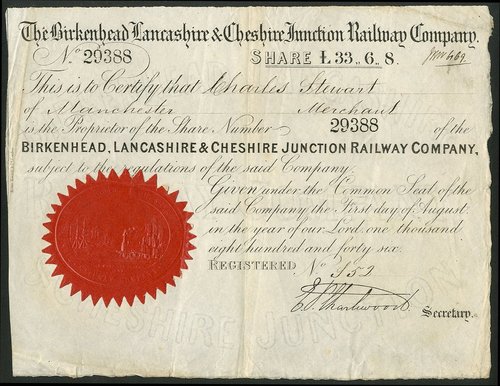 The Birkenhead Lancashire & Cheshire Junction Railway Company.
No. 29388
SHARE £33,,6,,8.
This is to Certify that Charles Stewart
of Manchester Merchant
is the Proprietor of the Share Number 29388 of the
BIRKENHEAD, LANCASHIRE & CHESHIRE JUNCTION RAILWAY COMPANY,
subject to the regulations of the said Company.
Given under the Common Seal of the
said Company the First day of August
in the year of our Lord one thousand
eight hundred and forty six.
REGISTERED No. 352
Secretary.